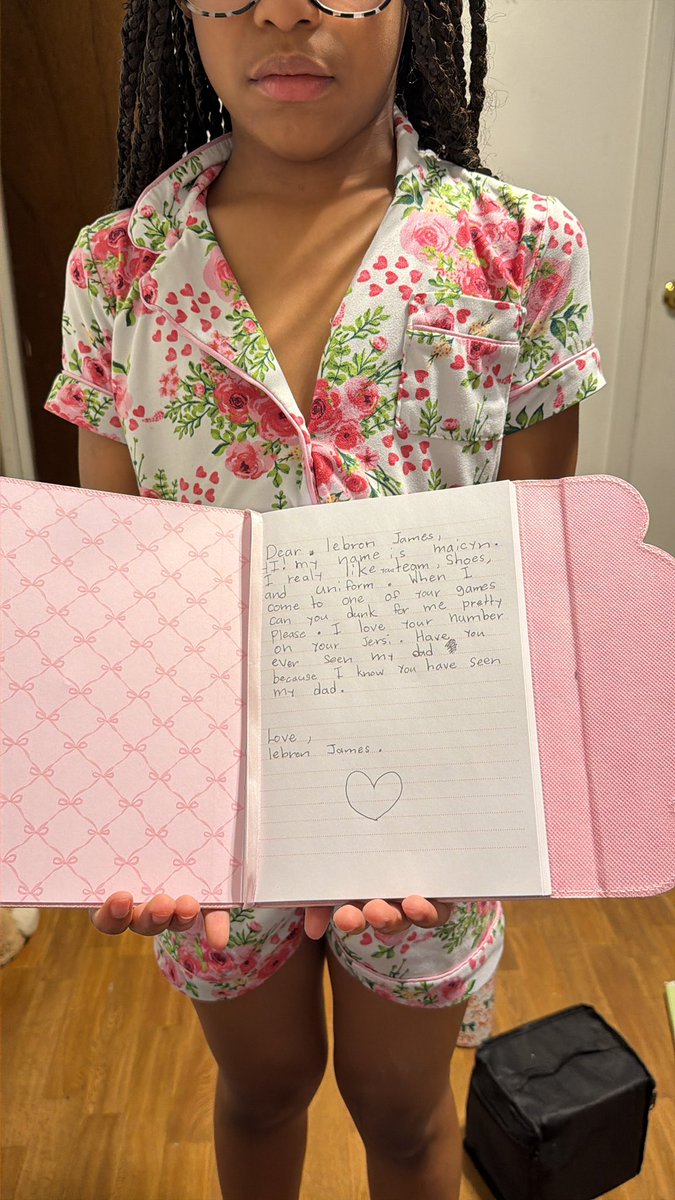 Dear. lebron James,
HI! my name is maicyn.
I realy like your team, Shoes,
and uniform. When I
come to one of your games
can you dunk for me pretty
Please. I love your number
on your Jersi. Have you
ever seen my dad
because I know you have seen
my dad.
Love,
lebron James.